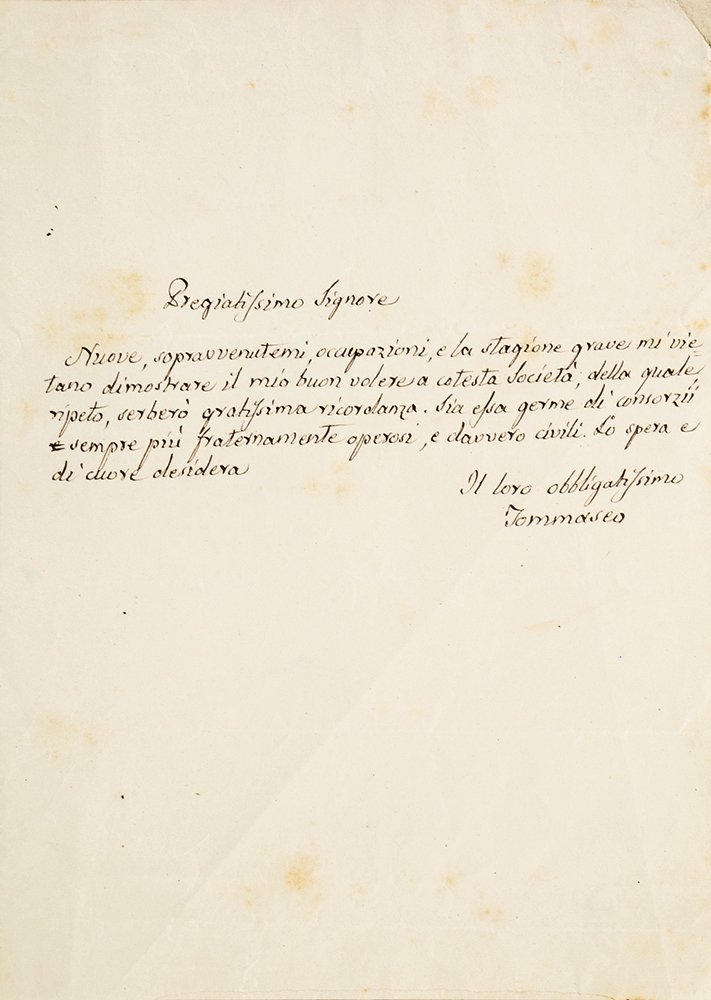 Pregiatissimo Signore
Nuove, sopravvenutemi, occupazioni, e la stagione grave mi vie-
tano dimostrare il mio buon volere a cotesta Società, della quale,
ripeto, serberò gratissima ricordanza. Sia essa germe di consorzii
sempre più fraternamente operosi, e davvero civili. Lo spera e
di cuore desidera
Il loro obbligatissimo
Tommaseo